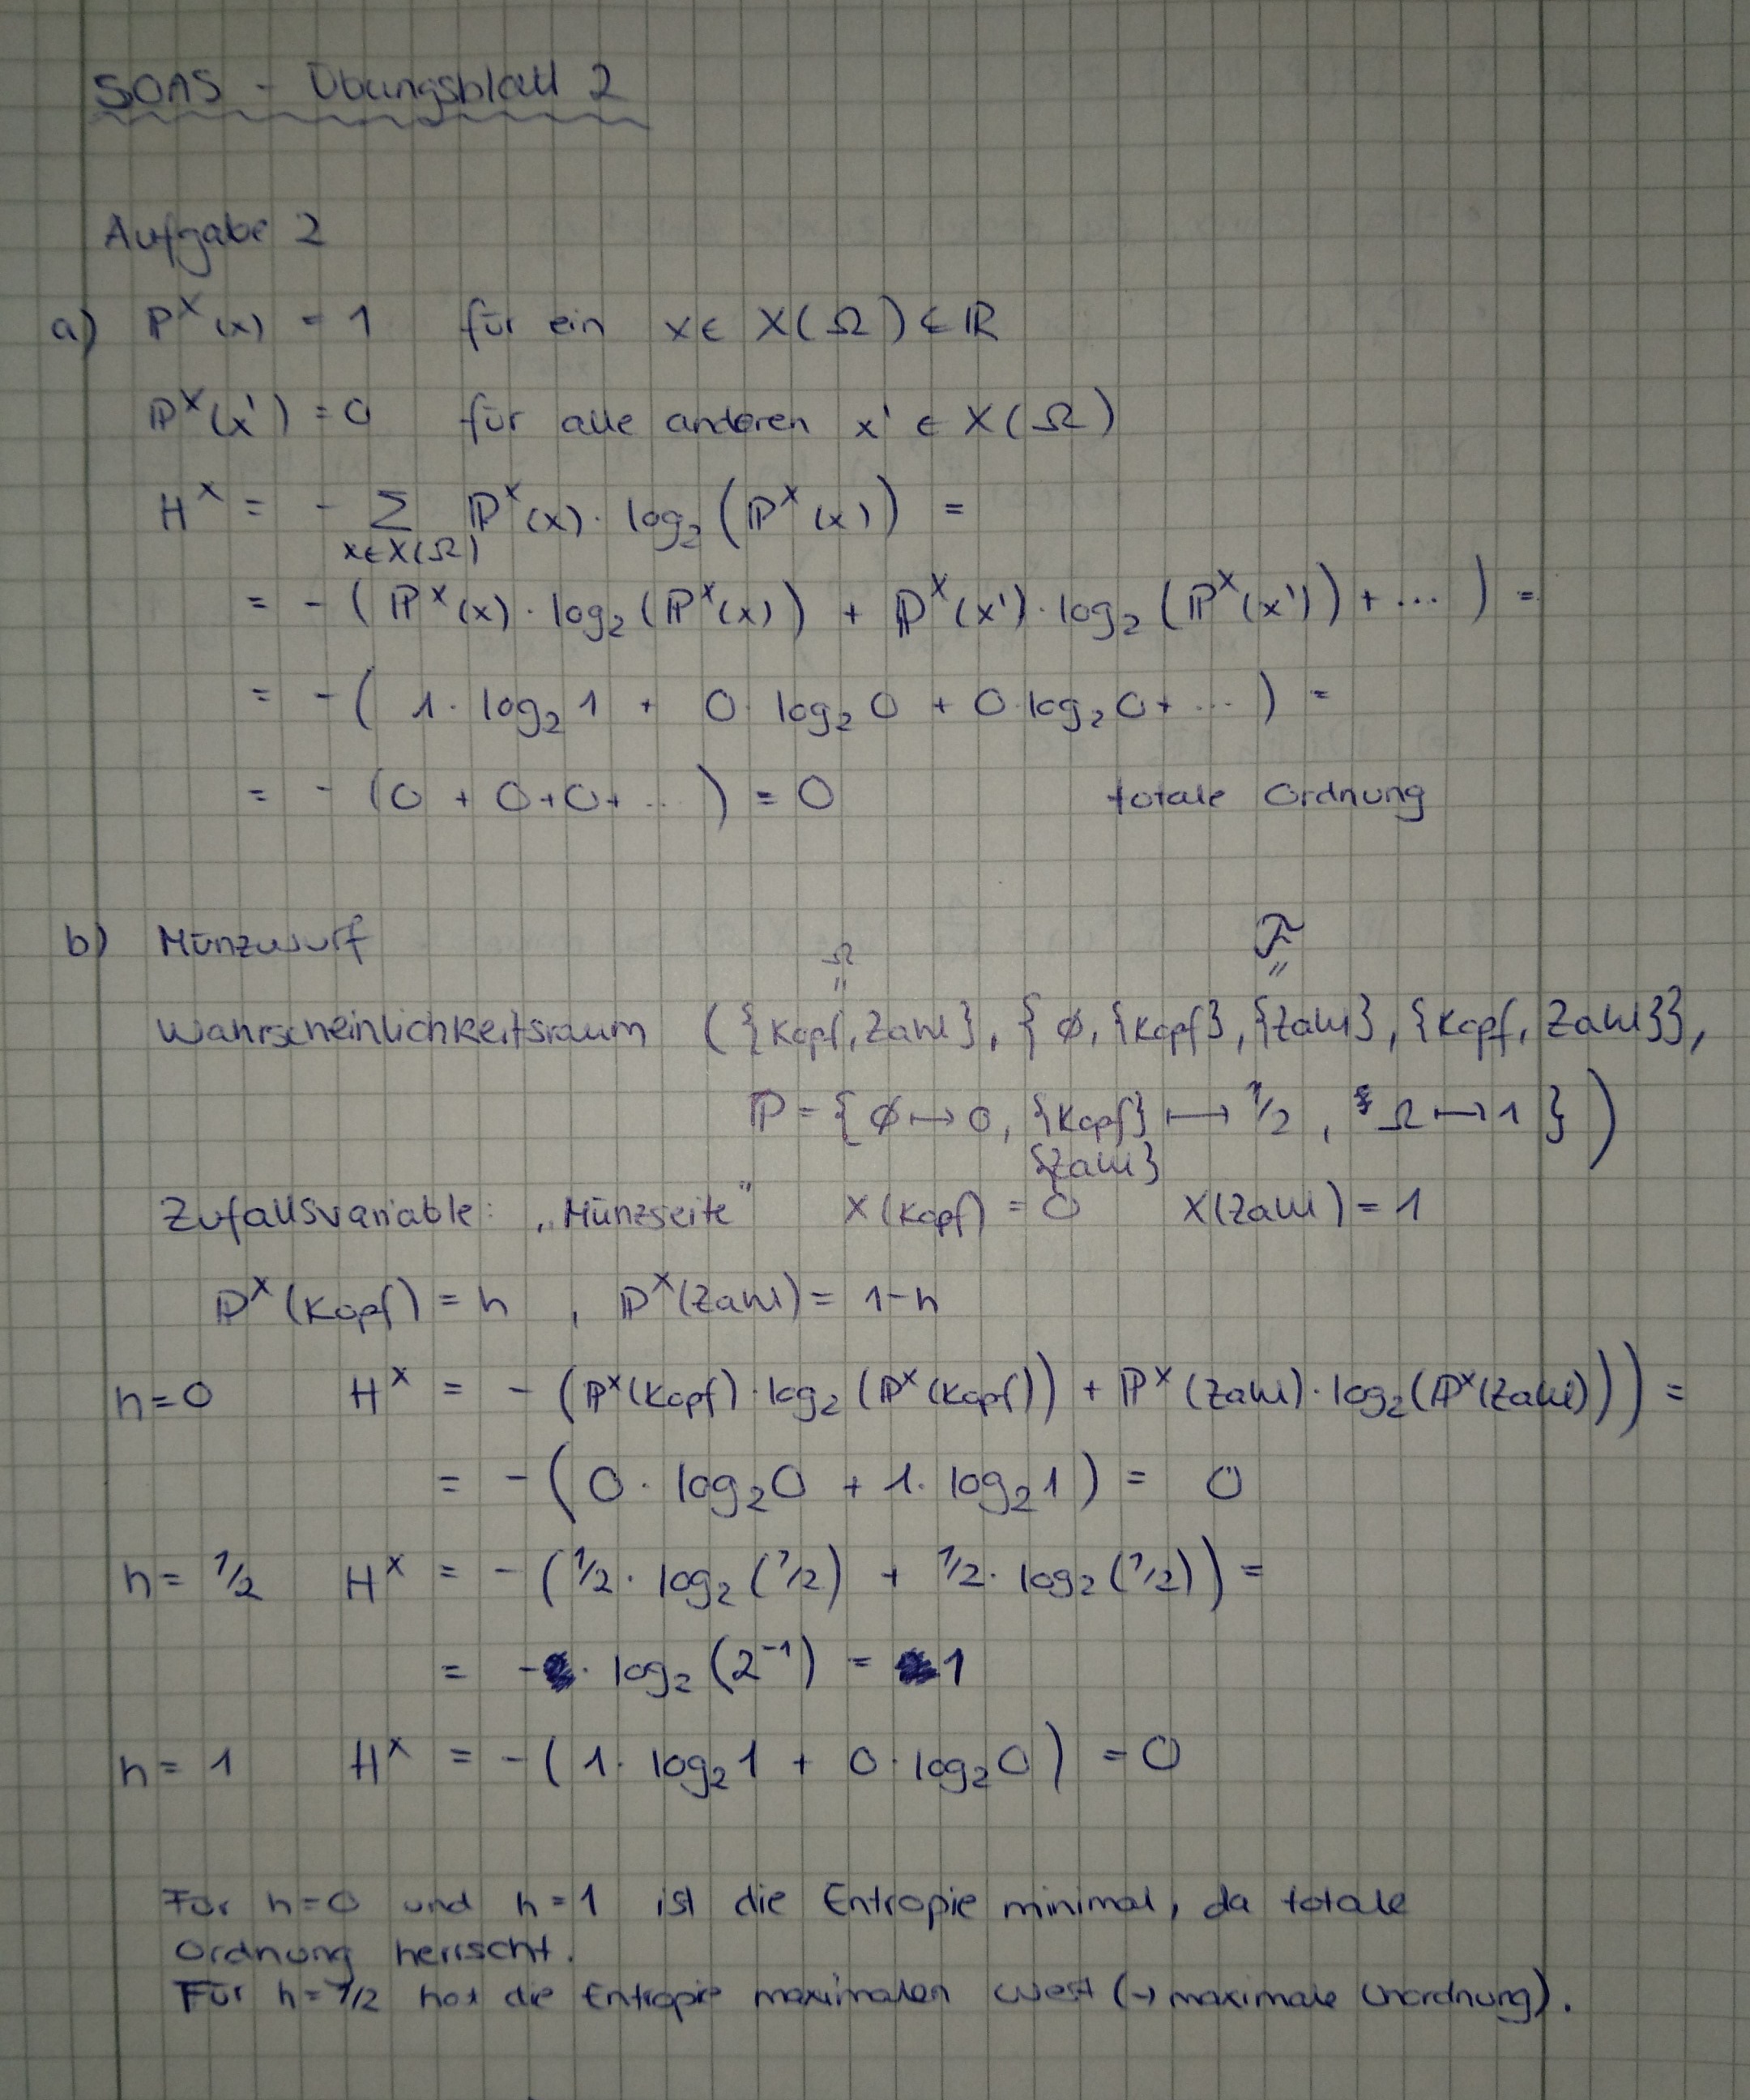 SOAS - Übungsblatt 2
Aufgabe 2
a) ℙˣ(x) = 1 für ein x ∈ X(Ω) ∈ ℝ
ℙˣ(x') = 0 für alle anderen x' ∈ X(Ω)
Hˣ = - Σ ℙˣ(x) · log₂(ℙˣ(x)) =
x∈X(Ω)
= - (ℙˣ(x) · log₂(ℙˣ(x)) + ℙˣ(x') · log₂(ℙˣ(x')) + ... ) =
= - ( 1 · log₂ 1 + 0 · log₂ 0 + 0 · log₂ 0 + ... ) =
= - (0 + 0 + 0 + ... ) = 0 totale Ordnung
b) Münzwurf
Ω = ℱ =
Wahrscheinlichkeitsraum ({Kopf, Zahl}, {∅, {Kopf}, {Zahl}, {Kopf, Zahl}},
ℙ = {∅ ↦ 0, {Kopf} ↦ 1/2, Ω ↦ 1 })
{Zahl}
Zufallsvariable: „Münzseite" X(Kopf) = 0 X(Zahl) = 1
ℙˣ(Kopf) = h , ℙˣ(Zahl) = 1-h
h=0 Hˣ = - (ℙˣ(Kopf) · log₂(ℙˣ(Kopf)) + ℙˣ(Zahl) · log₂(ℙˣ(Zahl))) =
= - (0 · log₂ 0 + 1 · log₂ 1) = 0
h = 1/2 Hˣ = - (1/2 · log₂(1/2) + 1/2 · log₂(1/2)) =
= - · log₂(2⁻¹) = 1
h = 1 Hˣ = - (1 · log₂ 1 + 0 · log₂ 0) = 0
Für h=0 und h=1 ist die Entropie minimal, da totale
Ordnung herrscht.
Für h=1/2 hat die Entropie maximalen Wert (→ maximale Unordnung).